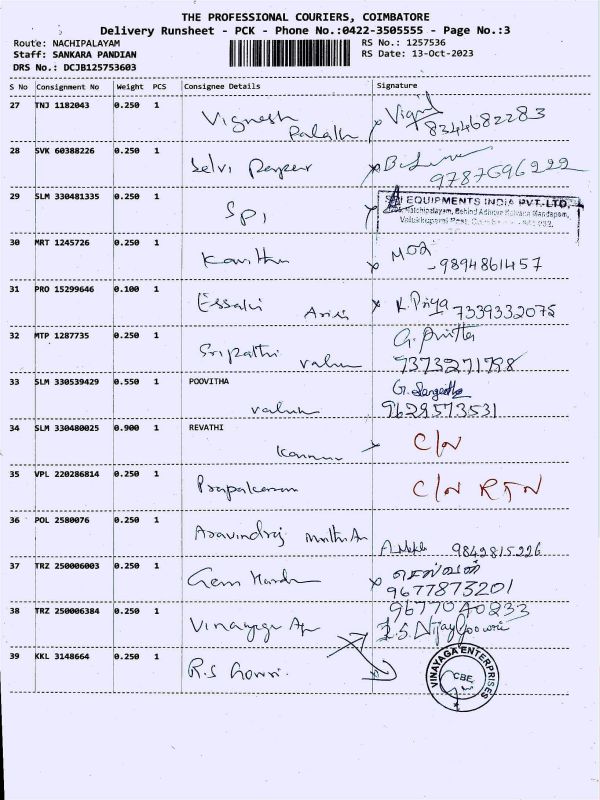 THE PROFESSIONAL COURIERS, COIMBATORE
Delivery Runsheet - PCK - Phone No.:0422-3505555 - Page No.:3
Route: NACHIPALAYAM RS No.: 1257536
Staff: SANKARA PANDIAN RS Date: 13-Oct-2023
DRS No.: DCJB125753603
S No Consignment No Weight PCS Consignee Details Signature
27 TNJ 1182043 0.250 1 Vignesh
8344682283
28 SVK 60388226 0.250 1 Selvi
9787696222
29 SLM 330481335 0.250 1 SPI
EQUIPMENTS INDIA PVT.LTD.,
30 MRT 1245726 0.250 1 Kavitha
9894861457
31 PRO 15299646 0.100 1 Essaki K. Priya 7339332075
32 MTP 1287735 0.250 1 Sripathi
9373271798
33 SLM 330539429 0.550 1 POOVITHA G. Sangeetha
9629573531
34 SLM 330480025 0.900 1 REVATHI C/N
35 VPL 220286814 0.250 1 C/N RTN
36 POL 2580076 0.250 1 Aravindraj
9842815226
37 TRZ 250006003 0.250 1 செல்வன்
9677873201
38 TRZ 250006384 0.250 1 Vinayaga 9677040233
39 KKL 3148664 0.250 1 R.S Gowri.
VINAYAGA ENTERPRISES
CBE